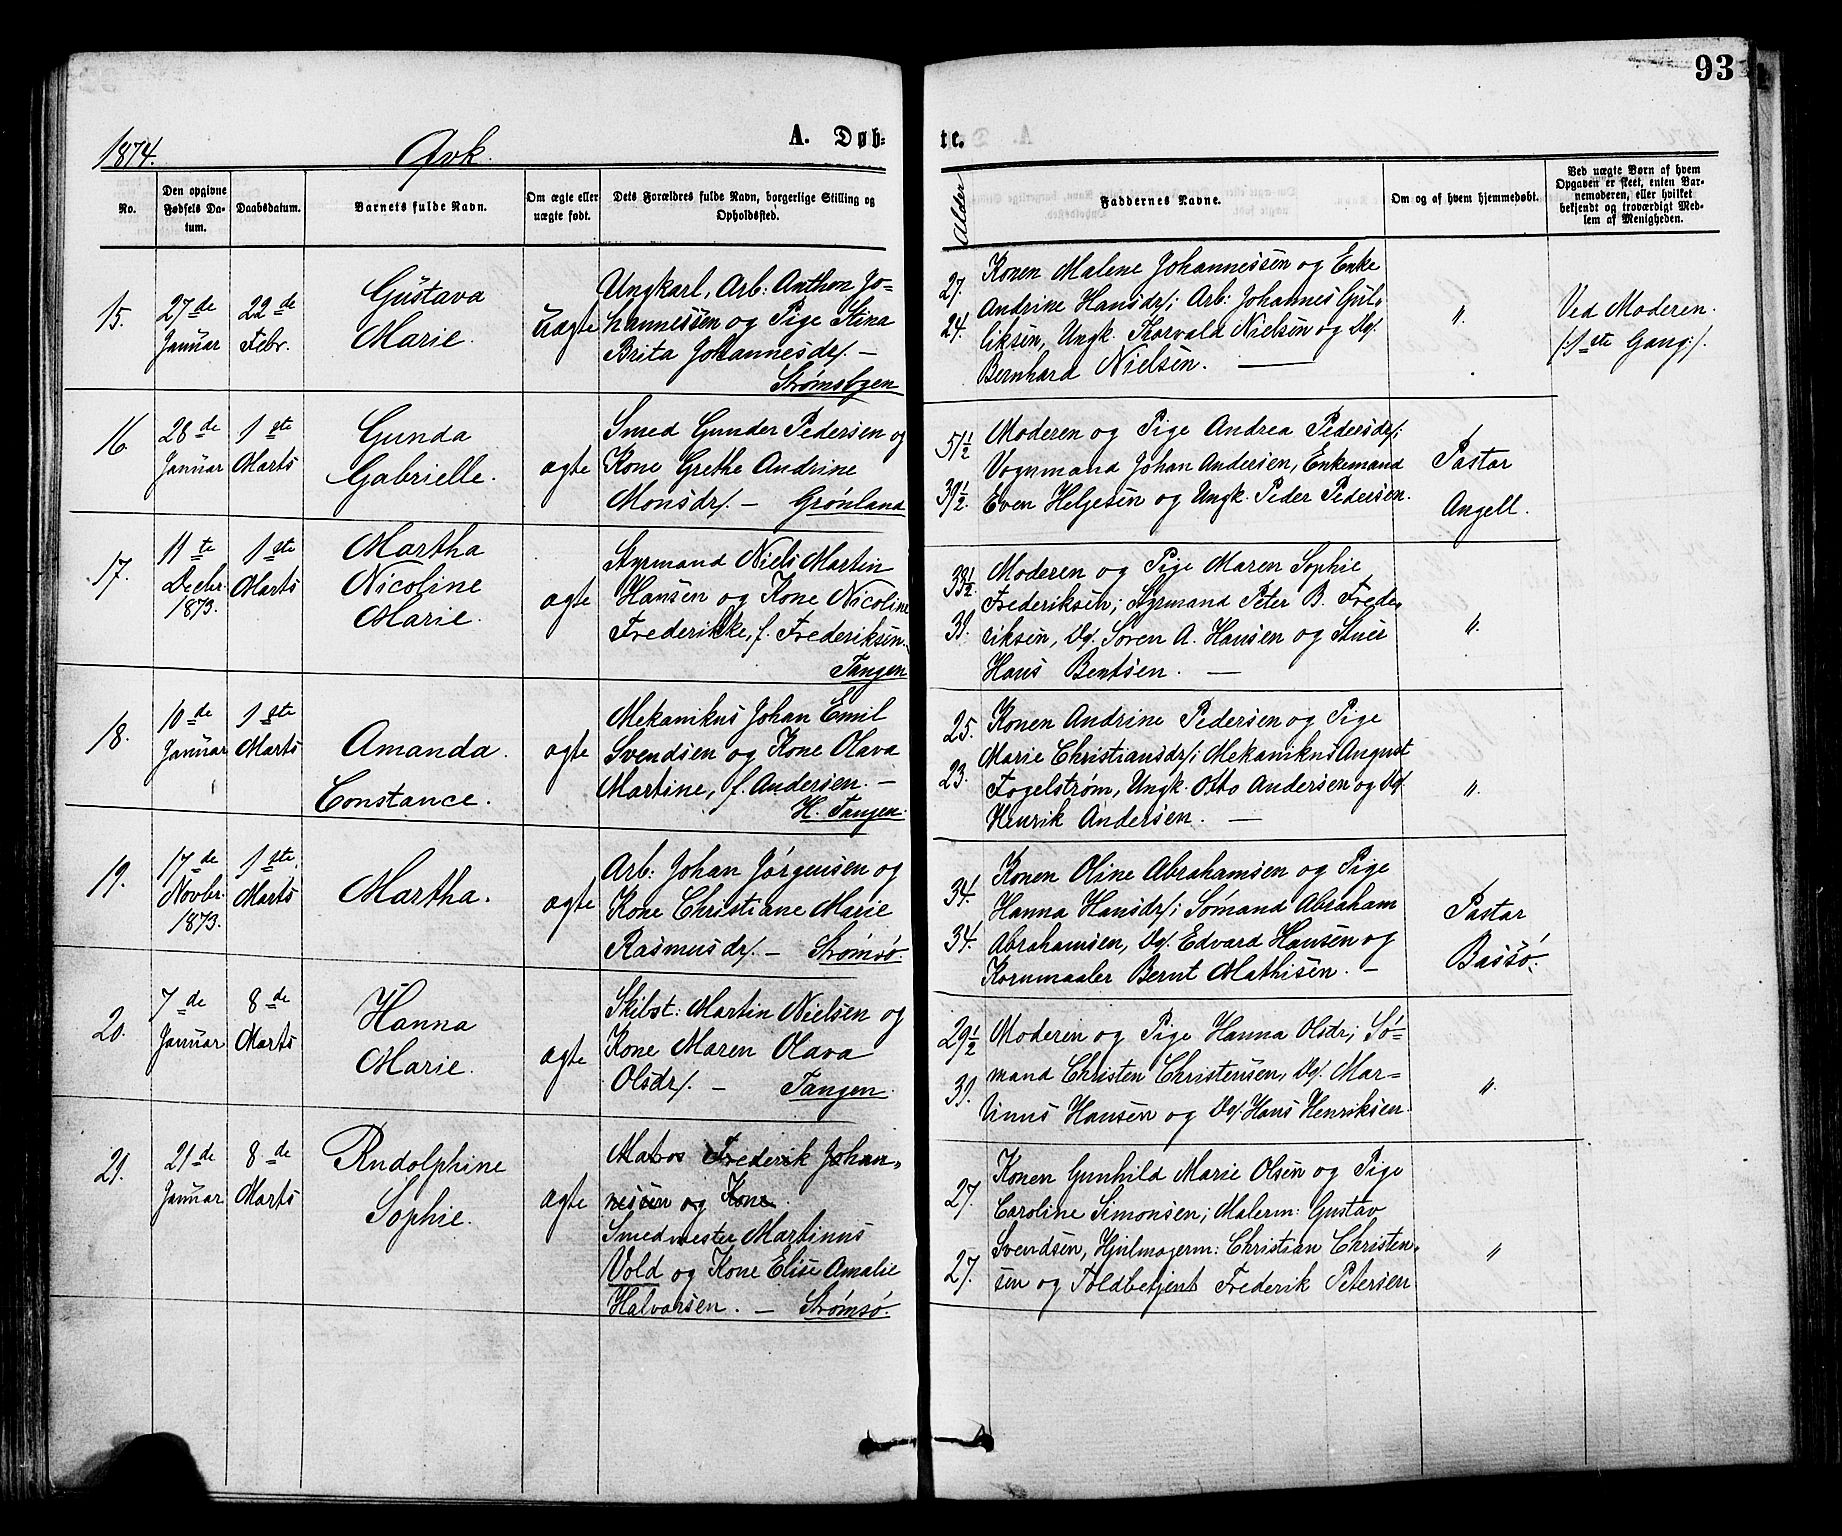 93
1874.
Qvk.
A. Døb=
te.
No.
Den opgivne
Fødsels Da-
tum.
Daabsdatum.
Barnets fulde Navn.
Om ægte eller
uægte født.
Dets Forældres fulde Navn, borgerlige Stilling og
Opholdssted.
Alder
Faddernes Navne.
Om og af hvem hjemmedøbt.
Ved uægte Børn af hvem
Opgaven er skeet, enten Bar-
nemoderen, eller hvilket
bekjendt og troværdigt Med-
lem af Menigheden.
15.
27de
Januar
22de
Febr.
Gustava
Marie.
Uægte
Ungkarl, Arb: Anthon Jo-
hannessen og Pige Stina
Brita Johannesdr/. —
Strømsbyen
27.
24.
Konen Malene Johannessen og Enke
Andrine Hansdr/; Arb: Johannes Gul-
liksen, Ungk. Thorvald Nielsen og Do/.
Bernhard Nielsen. —
"
Ved Moderen.
/: 1ste Gang :/.
16.
28de
Januar
1ste
Marts
Gunda
Gabrielle.
ægte
Smed Gunder Pedersen og
Kone Grethe Andrine
Monsdr/. — Grönland
51½
39½
Moderen og Pige Andrea Pedersdr/;
Vognmand Johan Andersen, Enkemand
Even Helgesen og Ungk. Peder Pedersen.
Pastor
Angell.
17.
11te
Decbr.
1873.
1ste
Marts
Martha
Nicoline
Marie.
ægte
Styrmand Niels Martin
Hansen og Kone Nicoline
Frederikke, f. Frederiksen.
Tangen
33½
39.
Moderen og Pige Maren Sophie
Frederiksen; Styrmand Peter B. Frede-
riksen, Do/. Sören A. Hansen og Stuer
Hans Bentsen. —
"
18.
10de
Januar
1ste
Marts
Amanda
Constance.
ægte
Mekanikus Johan Emil
Svendsen og Kone Olava
Martine, f. Andersen. —
H. Tangen.
25.
23.
Konen Andrine Pedersen og Pige
Marie Christiansdr/; Mekanikus August
Fogelstrøm, Ungk. Otto Andersen og Do/.
Henrik Andersen. —
"
19.
17de
Novbr.
1873.
1ste
Marts
Martha.
ægte
Arb: Johan Jörgensen og
Kone Christiane Marie
Rasmusdr/. — Strömsö.
34.
34.
Konen Oline Abrahamsen og Pige
Hanna Hansdr/; Sömand Abraham
Abrahamsen, Do/. Edvard Hansen og
Kornmaaler Bernt Mathisen. —
Pastor
Bassö.
20.
7de
Januar
8de
Marts
Hanna
Marie.
ægte
Skibst: Martin Nielsen og
Kone Maren Olava
Olsdr/. — Tangen.
29½
39.
Moderen og Pige Hanna Olsdr; Sö-
mand Christen Christensen, Do/. Mar-
tinus Hansen og Do/. Hans Henriksen.
"
21.
21de
Januar
8de
Marts
Rudolphine
Sophie.
ægte
Matros Frederik Johan-
nessen og Kone
Smedmester Martinus
Vold og Kone Elise Amalie
Halvorsen. — Strömsö.
27.
27.
Konen Gunhild Marie Olsen og Pige
Caroline Simonsen; Malerm: Gustav
Svendsen, Hjulmagerm: Christian Christen-
sen og Toldbetjent Frederik Petersen
"